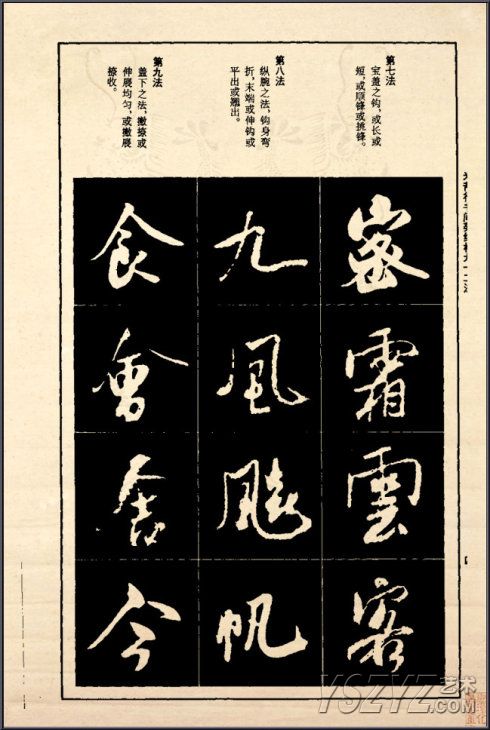 第七法
宝盖之钩，或长或
短，或顺锋或挑锋。
第八法
纵腕之法，钩身弯
折，末端或伸钩或
平出或翘出。
第九法
盖下之法，撇捺或
伸展均匀，或撇展
捺收。
密
霜
雲
客
九
風
飚
帆
食
會
舍
今
YSZYZ艺术
.COM